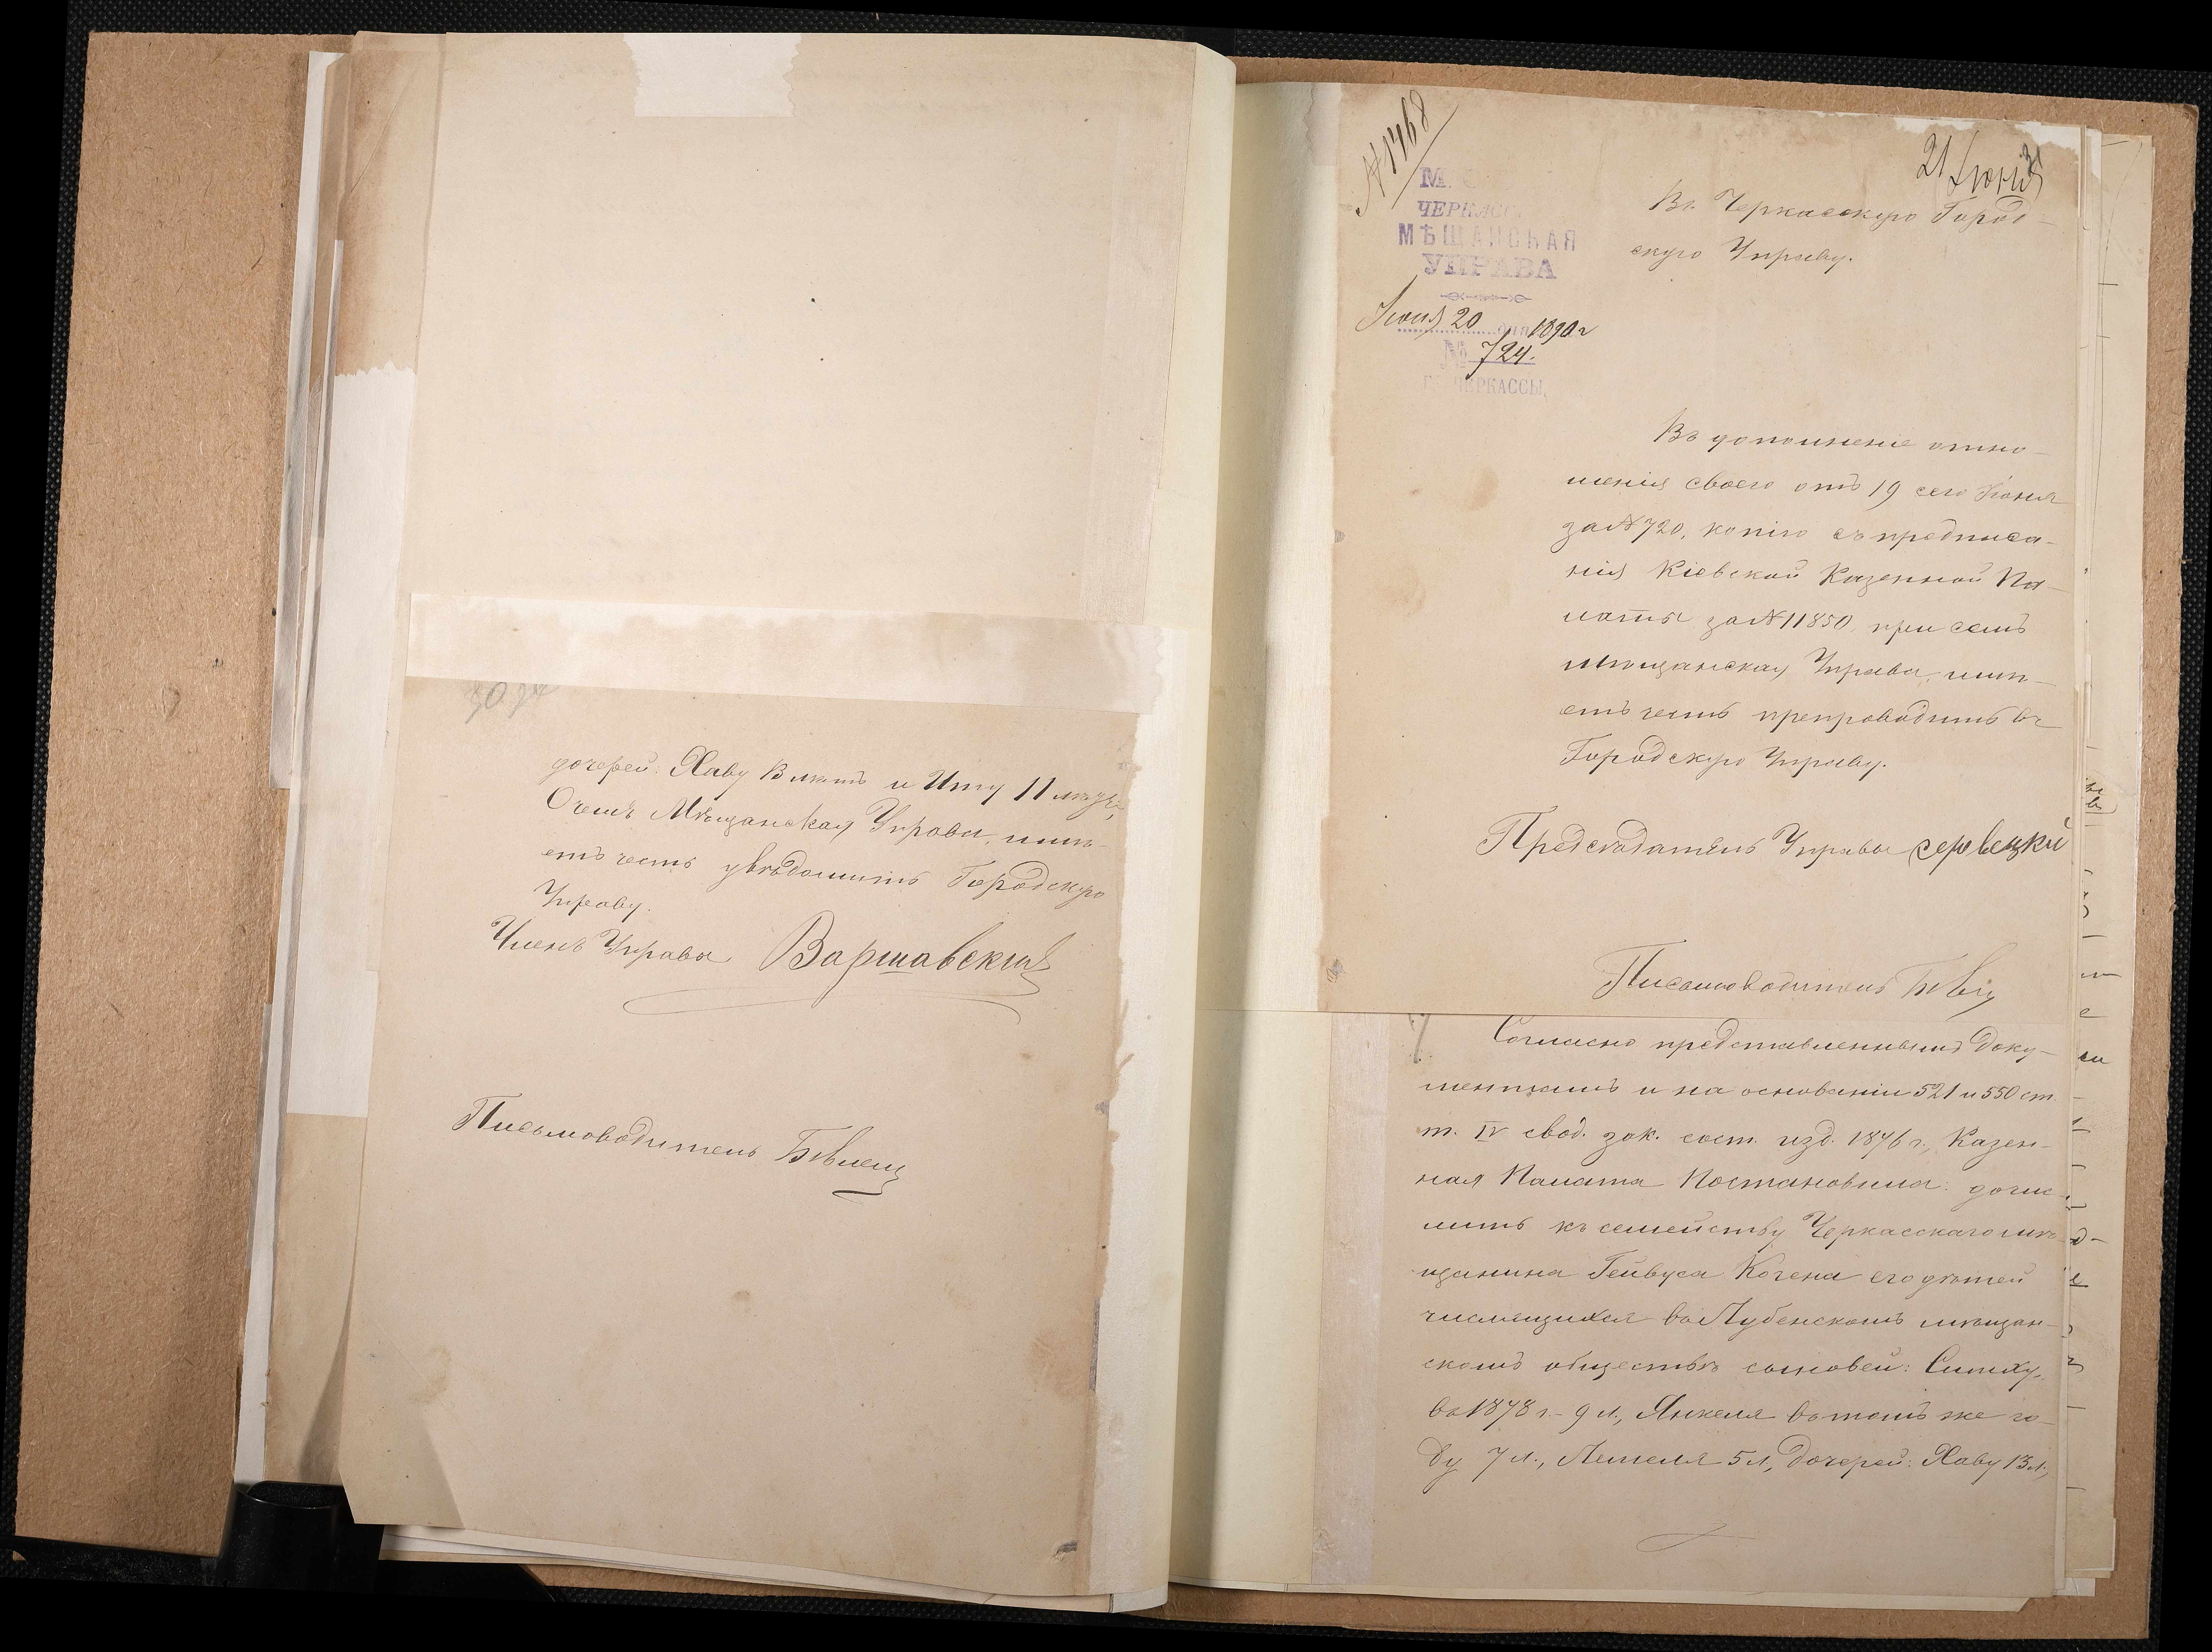 дочерей: Хаву 13 лѣтъ и Иту 11 лѣтъ,
О чемъ Мѣщанская Управа, имѣ-
етъ честь увѣдомить Городскую
Управу.
Членъ Управы Варшавскій
Письмоводитель
№ 1768
21 Іюня
М.
ЧЕРКАСС
МѢЩАНСКАЯ
УПРАВА
Іюня 20 дня 1890 г
№ 724.
Г. ЧЕРКАССЫ.
Въ Черкасскую Город-
скую Управу.
Въ дополненіе отно-
шенія своего отъ 19 сего Іюня
за № 720, копію съ предписа-
нія Кіевской Казенной Па-
латы за № 11850, при семъ
мѣщанская Управа, имѣ-
етъ честь препроводить въ
Городскую Управу.
Председатель Управы
Письмоводитель
Согласно представленнымъ доку-
ментамъ и на основаніи 521 и 550 ст.
т. IV свод. зак. сост. изд. 1876 г., Казен-
ная Палата Постановила: дочис-
лить къ семейству Черкасскаго мѣ-
щанина Гейвуса Когена его дѣтей
числящихся въ Лубенскомъ мѣщан-
скомъ обществѣ сыновей: Симху,
въ 1878 г. - 9 л., Янкеля въ томъ же го-
ду 7 л., 5 л., дочерей: Хаву 13 л.,